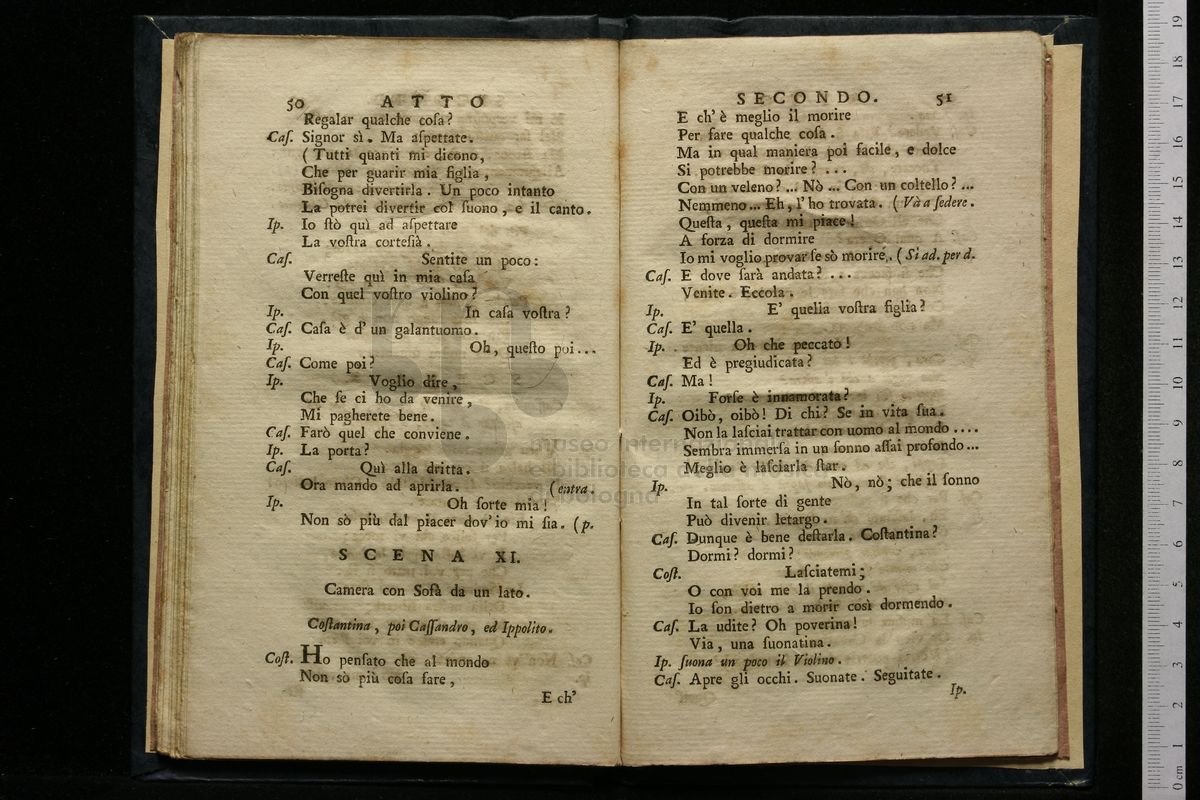 50 ATTO
Regalar qualche coſa?
Caſ. Signor sì. Ma aſpettate.
(Tutti quanti mi dicono,
Che per guarir mia figlia,
Biſogna divertirla. Un poco intanto
La potrei divertir col ſuono, e il canto.
Ip. Io ſtò quì ad aſpettare
La voſtra corteſià.
Caſ. Sentite un poco:
Verreſte quì in mia caſa
Con quel voſtro violino?
Ip. In caſa voſtra?
Caſ. Caſa è d'un galantuomo.
Ip. Oh, queſto poi...
Caſ. Come poi?
Ip. Voglio dire,
Che ſe ci ho da venire,
Mi pagherete bene.
Caſ. Farò quel che conviene.
Ip. La porta?
Caſ. Quì alla dritta.
Ora mando ad aprirla. (entra.
Ip. Oh ſorte mia!
Non sò più dal piacer dov'io mi ſia. (p.
SCENA XI.
Camera con Sofà da un lato.
Coſtantina, poi Caſſandro, ed Ippolito.
Coſt. Ho penſato che al mondo
Non sò più coſa fare,
E ch'
SECONDO. 51
E ch'è meglio il morire
Per fare qualche coſa.
Ma in qual maniera poi facile, e dolce
Si potrebbe morire? ...
Con un veleno? ... Nò ... Con un coltello? ...
Nemmeno... Eh, l'ho trovata. (Và a ſedere.
Queſta, queſta mi piace!
A forza di dormire
Io mi voglio provar ſe sò morire. (Si ad. per d.
Caſ. E dove ſarà andata? ...
Venite. Eccola.
Ip. E' quella voſtra figlia?
Caſ. E' quella.
Ip. Oh che peccato!
Ed è pregiudicata?
Caſ. Ma!
Ip. Forſe è innamorata?
Caſ. Oibò, oibò! Di chi? Se in vita ſua.
Non la laſciai trattar con uomo al mondo ....
Sembra immerſa in un ſonno aſſai profondo...
Meglio è laſciarla ſtar.
Ip. Nò, nò; che il ſonno
In tal ſorte di gente
Può divenir letargo.
Caſ. Dunque è bene deſtarla. Coſtantina?
Dormi? dormi?
Coſt. Laſciatemi;
O con voi me la prendo.
Io ſon dietro a morir così dormendo.
Caſ. La udite? Oh poverina!
Via, una ſuonatina.
Ip. ſuona un poco il Violino.
Caſ. Apre gli occhi. Suonate. Seguitate.
Ip.
museo internazionale
e biblioteca della musica
di bologna
0 cm 1 2 3 4 5 6 7 8 9 10 11 12 13 14 15 16 17 18 19